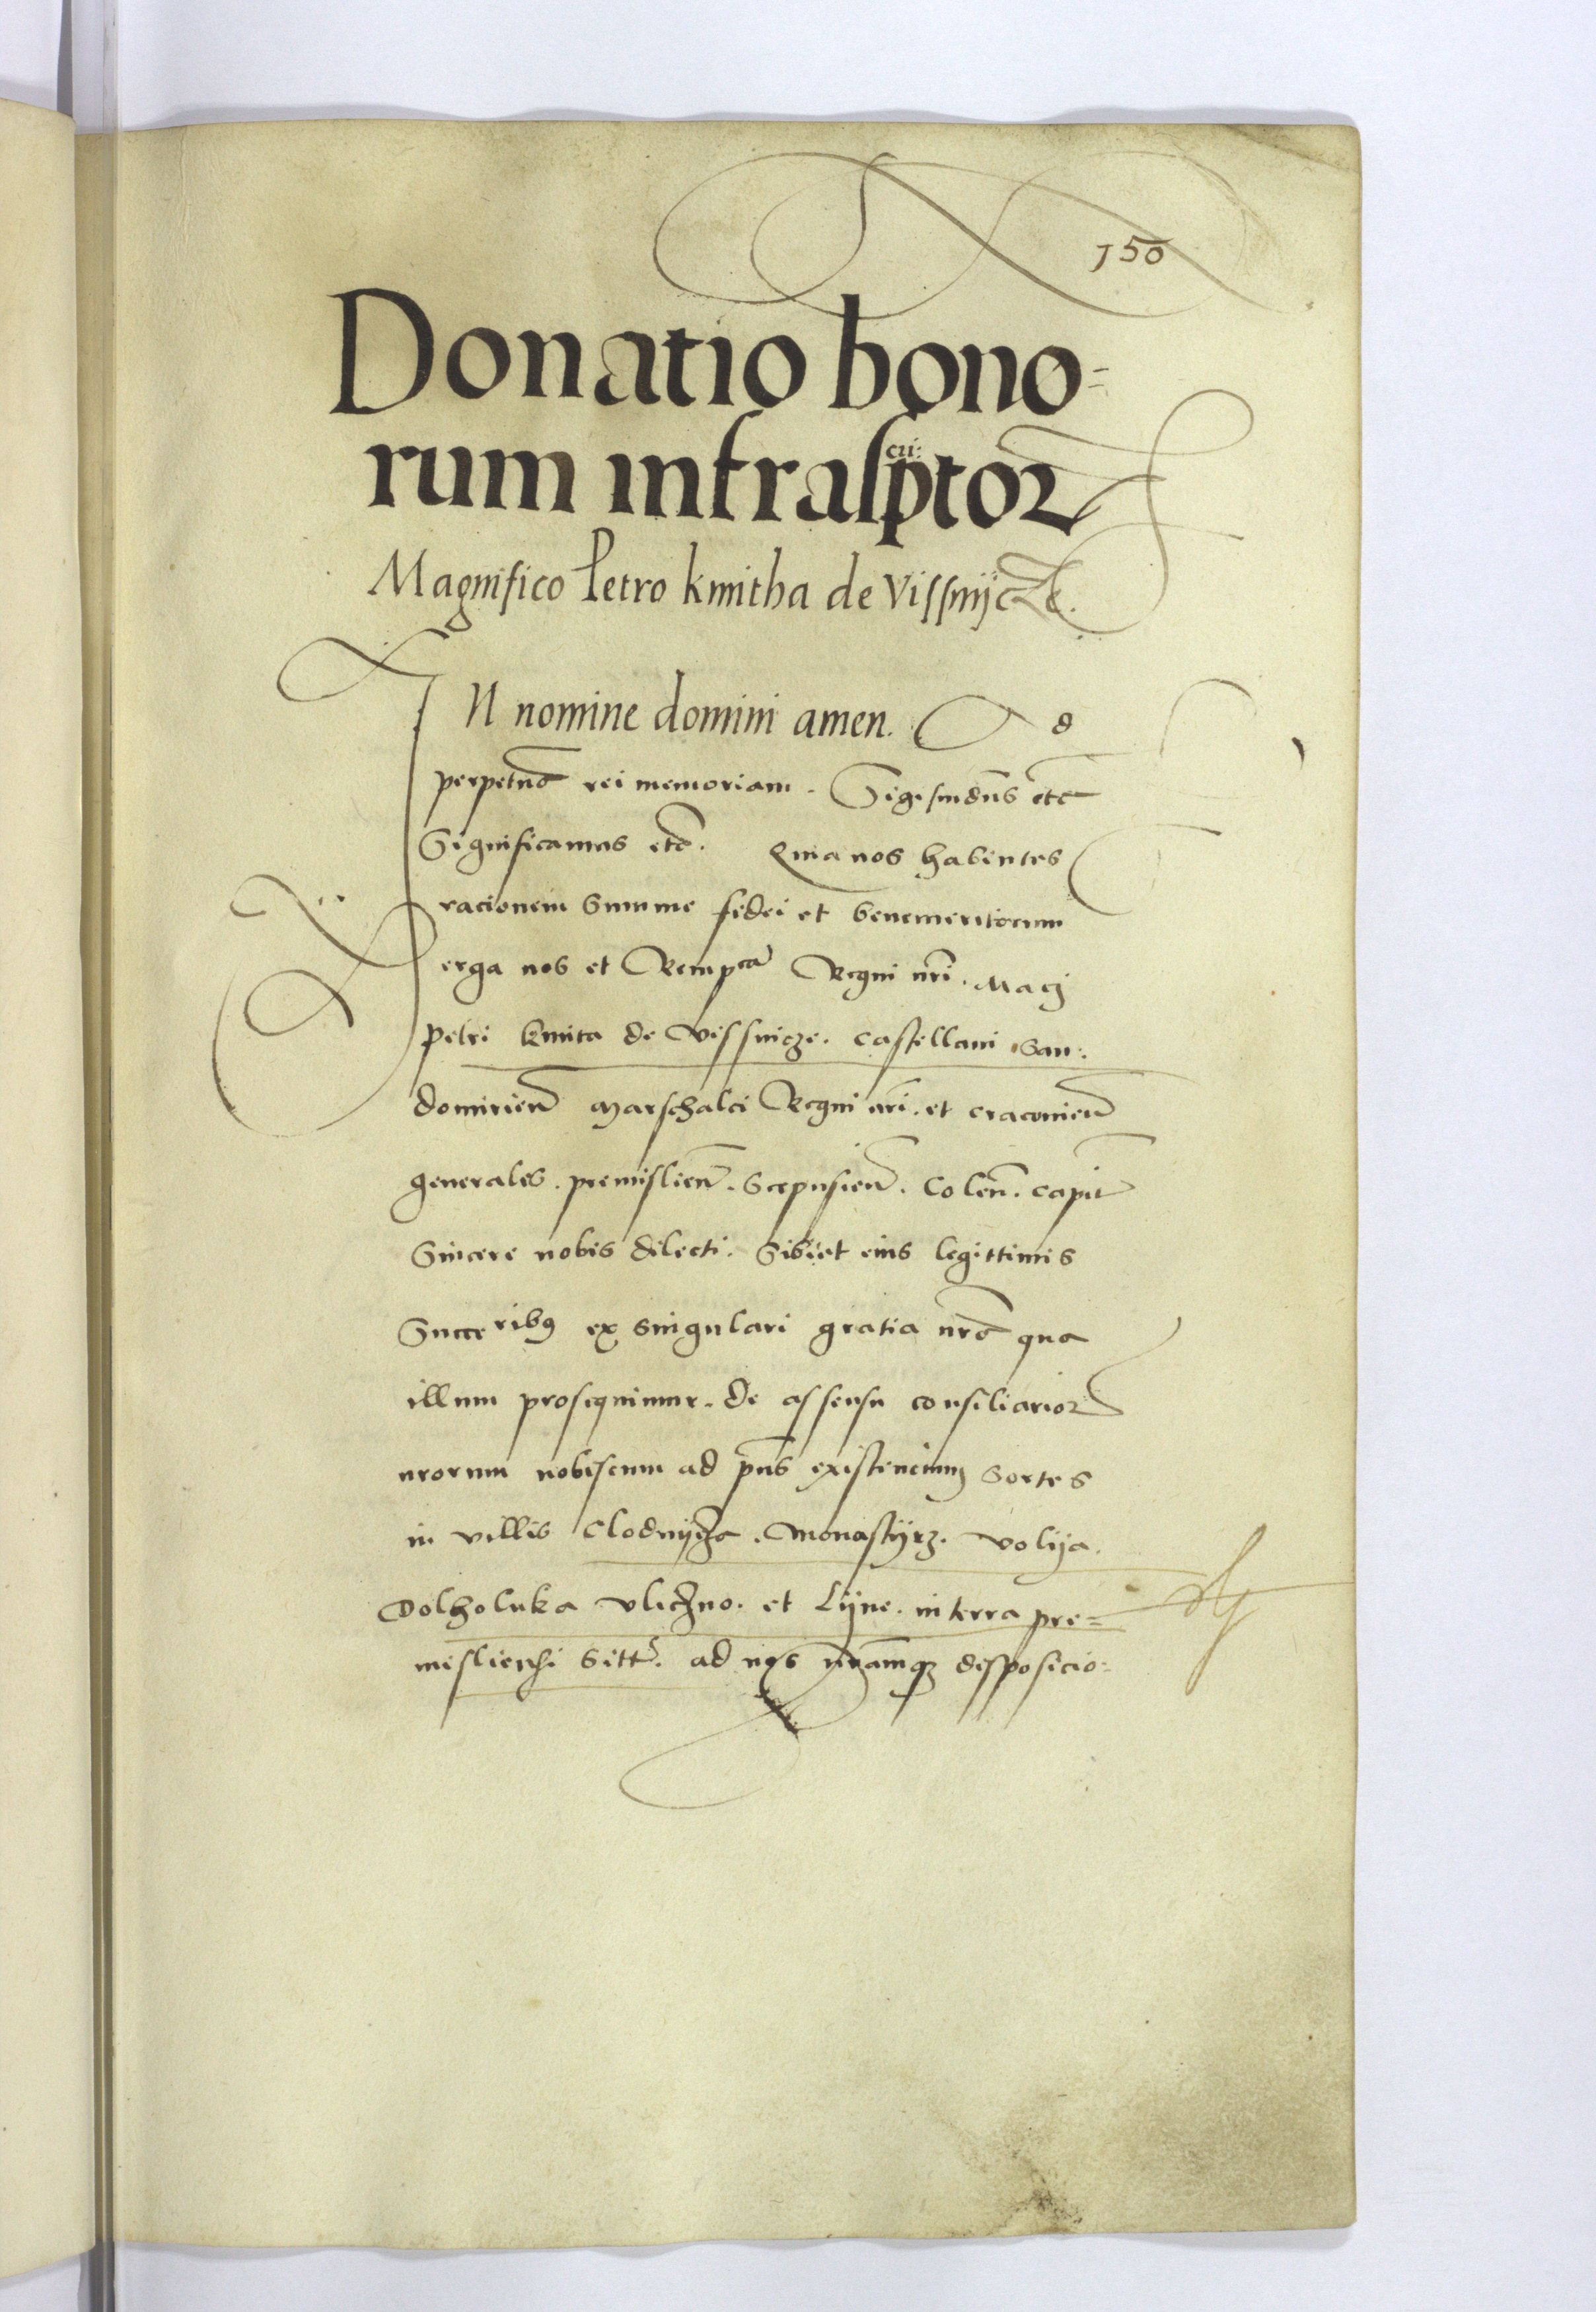 150
Donatio bono=
rum infrascri:ptor
Magnifico Petro kmitha de Vissnijcze.
IN nomine domini amen. Ad
perpetuā rei memoriam. Sigismūdūs etc
Significamus etc. Quia nos habentes
racionem Summe fidei et benemeritorum
erga nos et Rempcā Regni nri. Mag
petri kmita de Vissnicze. Castellani San:
domirieñ Marschalci Regni nri. et cracouieñ
generales. premislieñ. Scepusieñ. Coleñ. Capit
Sincere nobis dilecti. Sibi et eius legittimis
Successoribus ex singulari gratia nra qua
illum prosequimur. de assensu consiliarior
nrorum nobiscum ad pñs existencium Sortes
in villis Clodnijcza. Monastijrz. volija.
Dolholuka vliczno. et Lijne. in terra pre=
misliensi Sitt. ad nos nramq dispositio=